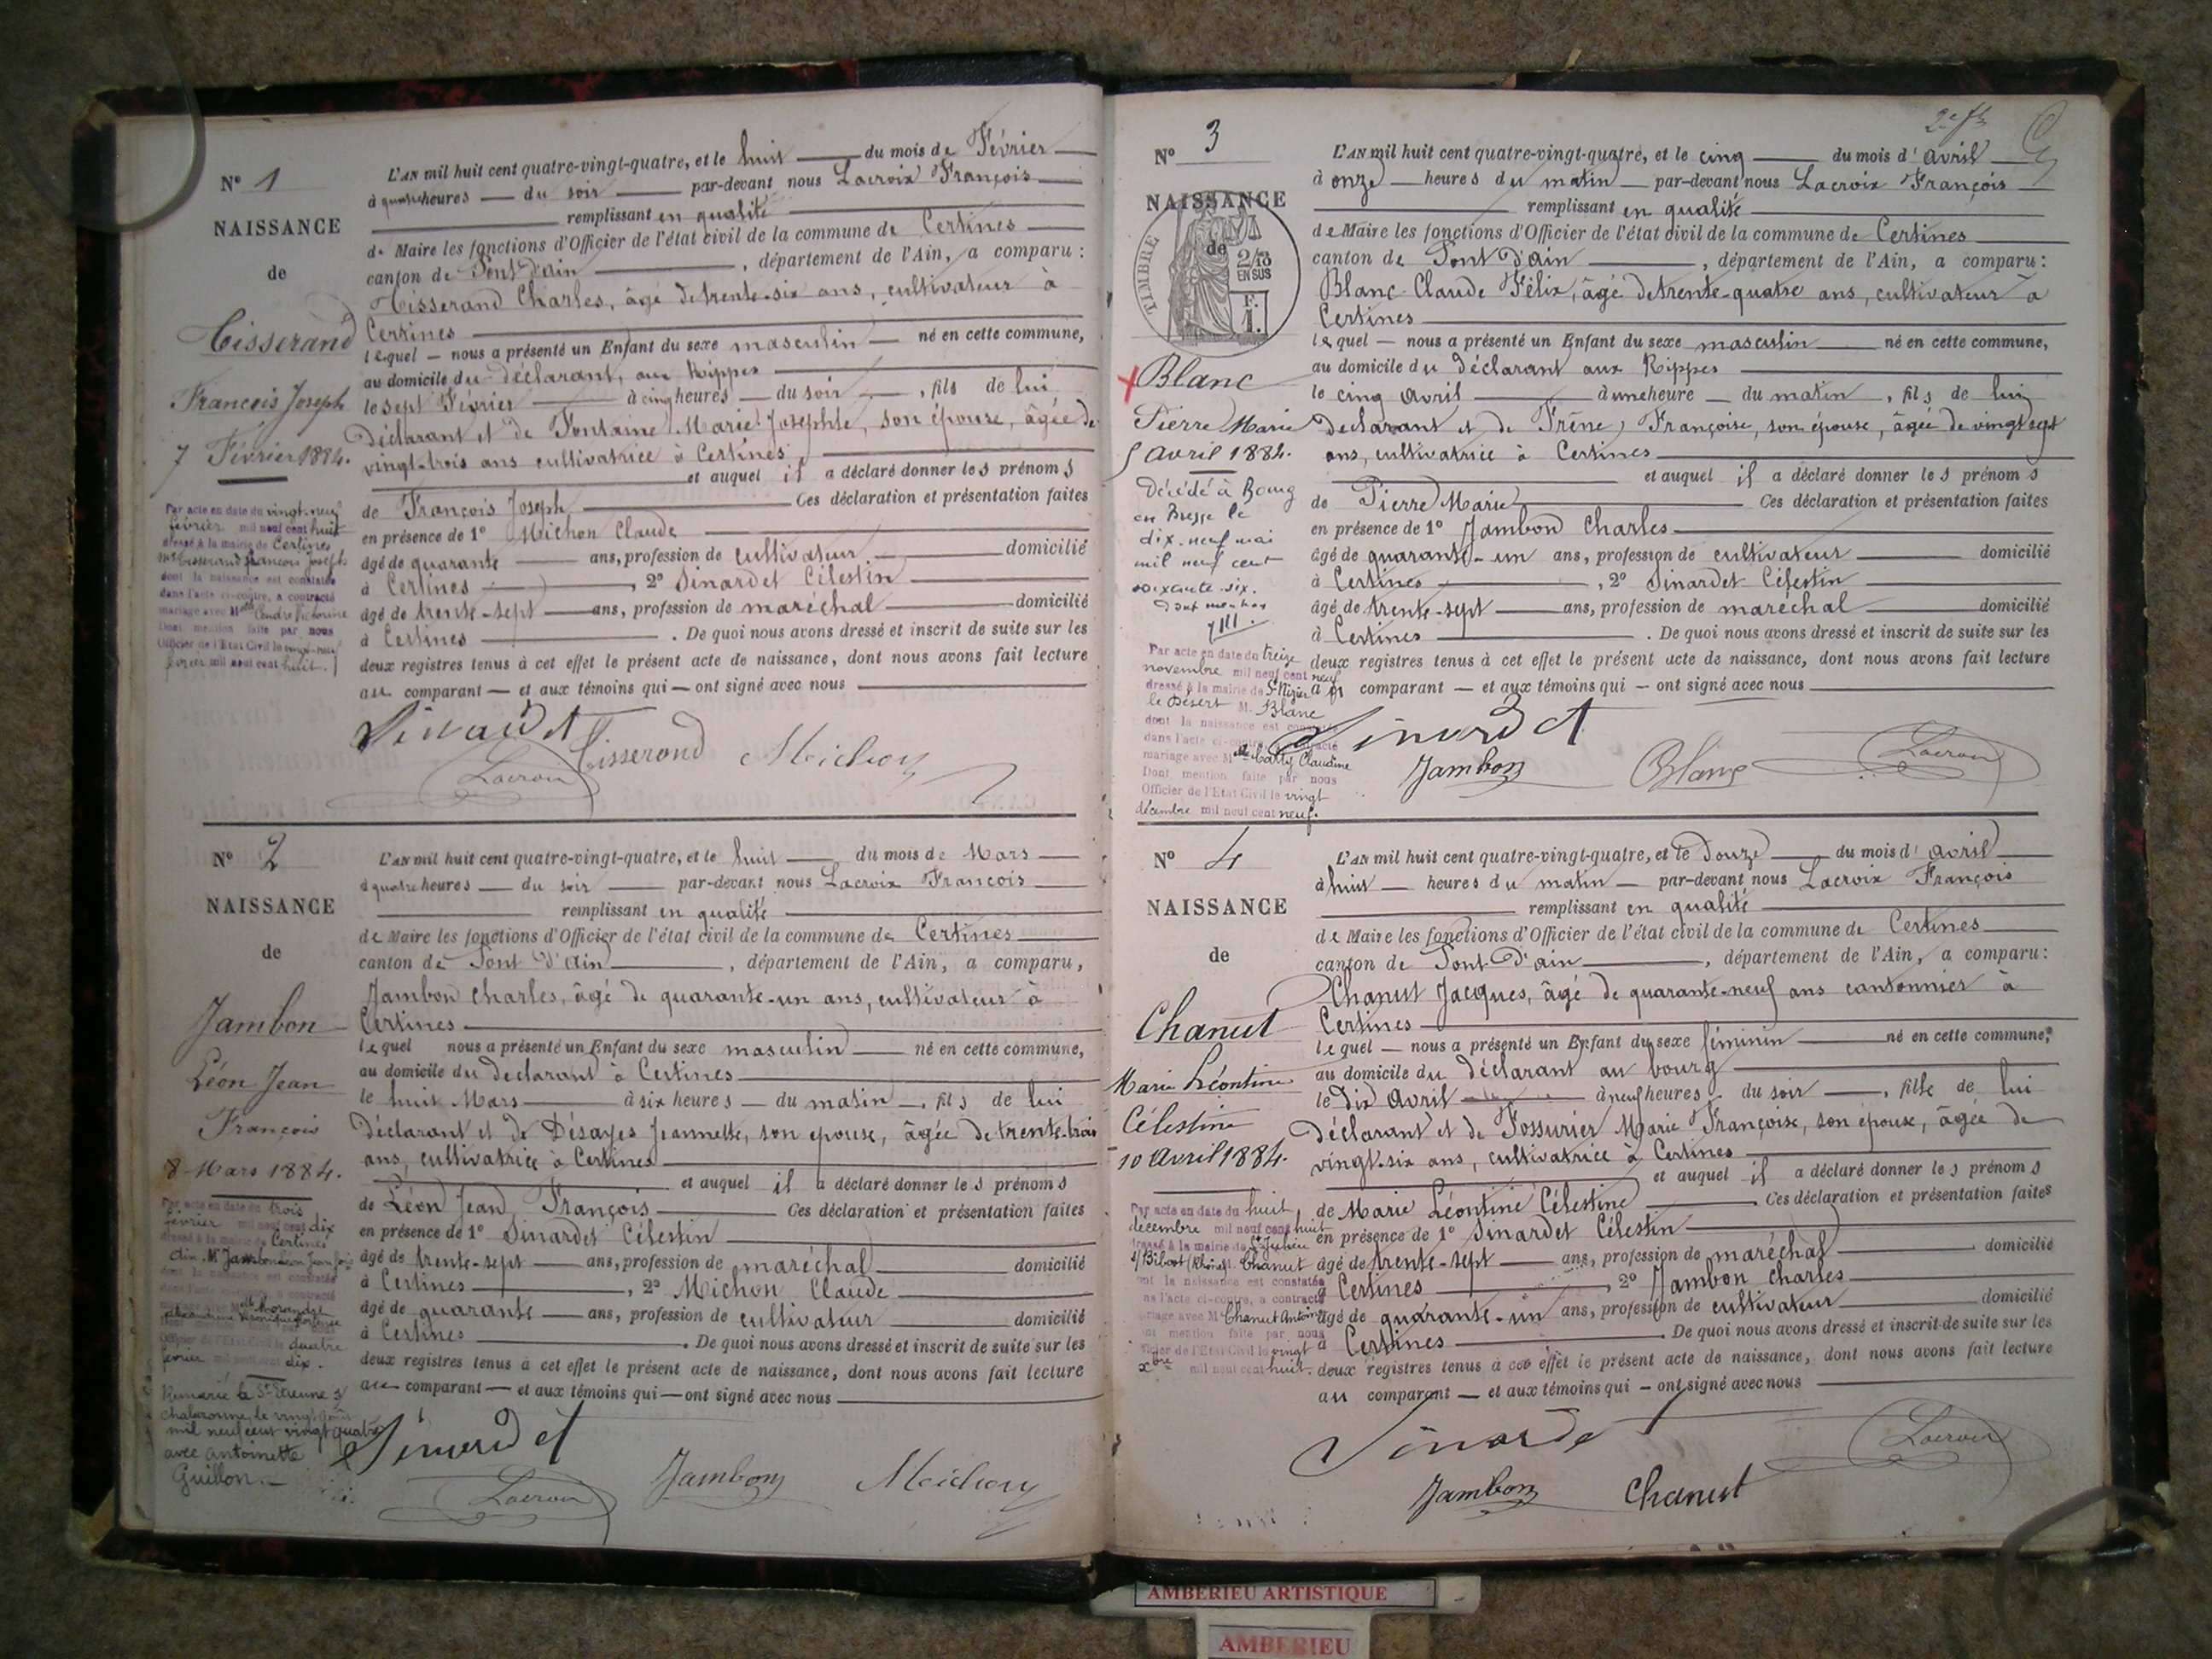 N° 1
NAISSANCE
de
Tisserand
François Joseph
7 Février 1884.
Par acte en date du vingt-neuf
février mil neuf cent huit
dressé à la mairie de Certines
Mr Tisserand François Joseph
dont la naissance est constatée
dans l'acte ci-contre, a contracté
mariage avec Melle
Dont mention faite par nous
Officier de l'Etat Civil le vingt-neuf
février mil neuf cent huit.
L'AN mil huit cent quatre-vingt-quatre, et le huit du mois de Février
à quatre heures du soir par-devant nous Lacroix François
remplissant en qualité
de Maire les fonctions d'Officier de l'état civil de la commune de Certines
canton de Pont d'ain, département de l'Ain, a comparu :
Tisserand Charles, âgé de trente-six ans, cultivateur à
Certines
lequel nous a présenté un Enfant du sexe masculin né en cette commune,
au domicile du déclarant, aux Rippes
le sept Février à cinq heures du soir, fils de lui
Déclarant et de Fontaine Marie Josephte, son épouse, âgée de
vingt-trois ans cultivatrice à Certines
et auquel il a déclaré donner les prénoms
de François Joseph Ces déclaration et présentation faites
en présence de 1° Michon Claude
âgé de quarante ans, profession de cultivateur domicilié
à Certines, 2° Sinardet Célestin
âgé de trente-sept ans, profession de maréchal domicilié
à Certines. De quoi nous avons dressé et inscrit de suite sur les
deux registres tenus à cet effet le présent acte de naissance, dont nous avons fait lecture
au comparant et aux témoins qui ont signé avec nous
Sinardet Tisserand Michon
Lacroix
N° 2
NAISSANCE
de
Jambon
Léon Jean
François
8 Mars 1884.
Par acte en date du trois
février mil neuf cent dix
dressé à la mairie de Certines
Ain Mr Jambon Léon Jean fois
dont la naissance est constatée
dans l'acte ci-contre, a contracté
mariage avec Melle
Officier de l'Etat Civil le quatre
février mil neuf cent dix.
Remarié à St Etienne s/
chalaronne le vingt
mil neuf cent vingt quatre
avec Antoinette
Guillon.
L'AN mil huit cent quatre-vingt-quatre, et le huit du mois de Mars
à quatre heures du soir par-devant nous Lacroix François
remplissant en qualité
de Maire les fonctions d'Officier de l'état civil de la commune de Certines
canton de Pont d'ain, département de l'Ain, a comparu,
Jambon Charles, âgé de quarante-un ans, cultivateur à
Certines
lequel nous a présenté un Enfant du sexe masculin né en cette commune,
au domicile du déclarant à Certines
le huit Mars à six heures du matin, fils de lui
Déclarant et de Désayes Jeannette, son épouse, âgée de trente-trois
ans, cultivatrice à Certines
et auquel il a déclaré donner les prénoms
de Léon Jean François Ces déclaration et présentation faites
en présence de 1° Sinardet Célestin
âgé de trente-sept ans, profession de maréchal domicilié
à Certines, 2° Michon Claude
âgé de quarante ans, profession de cultivateur domicilié
à Certines. De quoi nous avons dressé et inscrit de suite sur les
deux registres tenus à cet effet le présent acte de naissance, dont nous avons fait lecture
au comparant et aux témoins qui ont signé avec nous
Sinardet
Lacroix Jambon Michon
N° 3
NAISSANCE
de
TIMBRE
2/10
EN SUS
F.
1.
Blanc
Pierre Marie
5 avril 1884.
Décédé à Bourg
en Bresse le
dix-neuf mai
mil neuf cent
soixante-six.
Dont mention
Par acte en date du treize
novembre mil neuf cent neuf
dressé à la mairie de St Nizier
le Désert M. Blanc
dont la naissance est constatée
dans l'acte ci-contre, a contracté
mariage avec Melle Carty Claudine
Dont mention faite par nous
Officier de l'Etat Civil le vingt
décembre mil neuf cent neuf.
L'AN mil huit cent quatre-vingt-quatre, et le cinq du mois d'avril
à onze heures du matin par-devant nous Lacroix François
remplissant en qualité
de Maire les fonctions d'Officier de l'état civil de la commune de Certines
canton de Pont d'ain, département de l'Ain, a comparu :
Blanc Claude Félix, âgé de trente-quatre ans, cultivateur à
Certines
lequel nous a présenté un Enfant du sexe masculin né en cette commune,
au domicile du déclarant aux Rippes
le cinq avril à une heure du matin, fils de lui
Déclarant et de Frêne Françoise, son épouse, âgée de vingt sept
ans, cultivatrice à Certines
et auquel il a déclaré donner les prénoms
de Pierre Marie Ces déclaration et présentation faites
en présence de 1° Jambon Charles
âgé de quarante-un ans, profession de cultivateur domicilié
à Certines, 2° Sinardet Célestin
âgé de trente-sept ans, profession de maréchal domicilié
à Certines. De quoi nous avons dressé et inscrit de suite sur les
deux registres tenus à cet effet le présent acte de naissance, dont nous avons fait lecture
au comparant et aux témoins qui ont signé avec nous
Sinardet
Jambon Blanc Lacroix
N° 4
NAISSANCE
de
Chanut
Marie Léontine
Célestine
10 avril 1884.
Par acte en date du huit
décembre mil neuf cent huit
dressé à la mairie de St Julien
s/ Bibost (Rhône) Chanut
dont la naissance est constatée
dans l'acte ci-contre, a contracté
mariage avec M Chanut Antoine
Dont mention faite par nous
Officier de l'Etat Civil le vingt
xbre mil neuf cent huit.
L'AN mil huit cent quatre-vingt-quatre, et le douze du mois d'avril
à huit heures du matin par-devant nous Lacroix François
remplissant en qualité
de Maire les fonctions d'Officier de l'état civil de la commune de Certines
canton de Pont-d'ain, département de l'Ain, a comparu :
Chanut Jacques, âgé de quarante-neuf ans cantonnier à
Certines
lequel nous a présenté un Enfant du sexe féminin né en cette commune,
au domicile du déclarant au bourg
le dix avril à neuf heures du soir, fille de lui
Déclarant et de Fossurier Marie Françoise, son épouse, âgée de
vingt-six ans, cultivatrice à Certines
et auquel il a déclaré donner les prénoms
de Marie Léontine Célestine. Ces déclaration et présentation faites
en présence de 1° Sinardet Célestin
âgé de trente-sept ans, profession de maréchal domicilié
à Certines, 2° Jambon Charles
âgé de quarante-un ans, profession de cultivateur domicilié
à Certines. De quoi nous avons dressé et inscrit de suite sur les
deux registres tenus à cet effet le présent acte de naissance, dont nous avons fait lecture
au comparant et aux témoins qui ont signé avec nous
Sinardet Lacroix
Jambon Chanut
AMBERIEU ARTISTIQUE
AMBERIEU